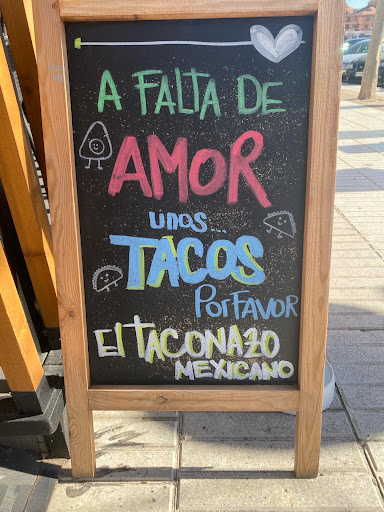 A FALTA DE
AMOR
unos...
TACOS
Por FAVOR
El TACONAZO
MEXICANO